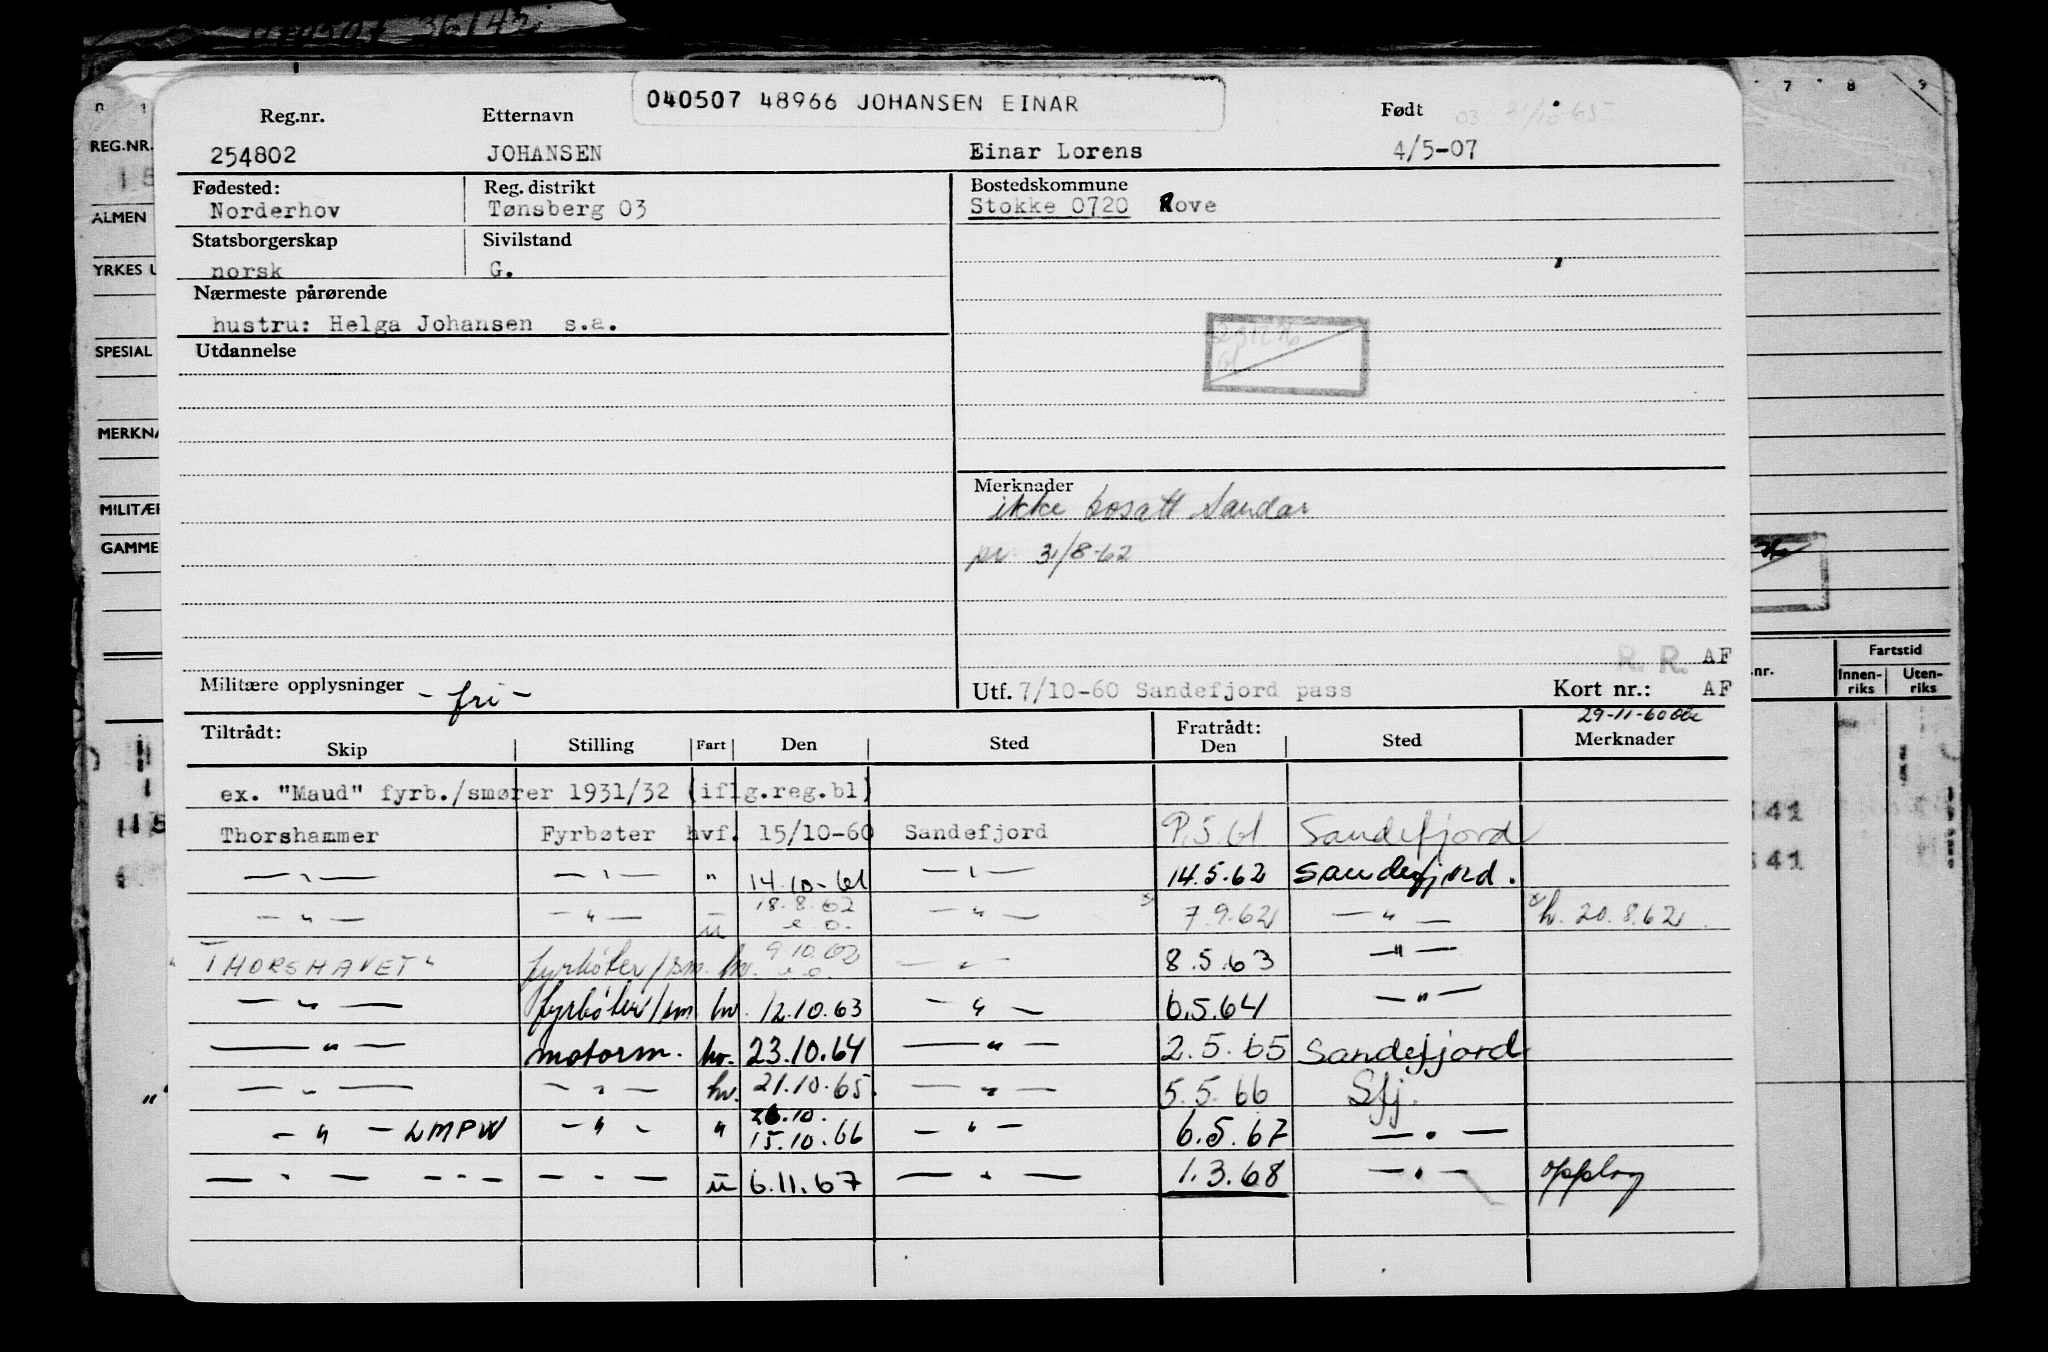 040507 48966 JOHANSEN EINAR
Reg.nr. Etternavn Født
254802 JOHANSEN Einar Lorens 4/5-07
Fødested: Reg. distrikt Bostedskommune
Norderhov Tønsberg 03 Stokke 0720 Rove
Statsborgerskap Sivilstand
norsk G.
Nærmeste pårørende
hustru: Helga Johansen s.a.
Utdannelse
Merknader
ikke bosatt Sandar
pr 31/8-62
R. R. AF
Militære opplysninger - fri - Utf. 7/10-60 Sandefjord pass Kort nr.: AF
29-11-60
Tiltrådt: Fratrådt:
Skip Stilling Fart Den Sted Den Sted Merknader
ex. "Maud" fyrb./smører 1931/32 (iflg.reg.bl)
Thorshammer Fyrbøter hvf. 15/10-60 Sandefjord 9.5.61 Sandefjord
— " — — " — " 14.10-61 — " — 14.5.62 Sandefjord.
— " — — " — u 18.8.62 — " — 7.9.62 — " — h. 20.8.62
"THORSHAVET" fyrbøter/sm. hv. 9.10.62 — " — 8.5.63 — " —
— " — fyrbøter/sm hv. 12.10.63 — " — 6.5.64 — " —
— " — motorm. hv. 23.10.64 — " — 2.5.65 Sandefjord
— " — — " — hv. 21.10.65. — " — 5.5.66 Sfj.
26.10.
— " — LMPW — " — " 15.10.66 — " — 6.5.67 — " —
— " — — " — — " — u 6.11.67 — " — 1.3.68 — " — opplag
REG.NR.
ALMEN
YRKES U
SPESIAL
MERKNA
MILITÆR
GAMME
7 8 9
nr. Fartstid
Innen-riks Uten-riks
41
41